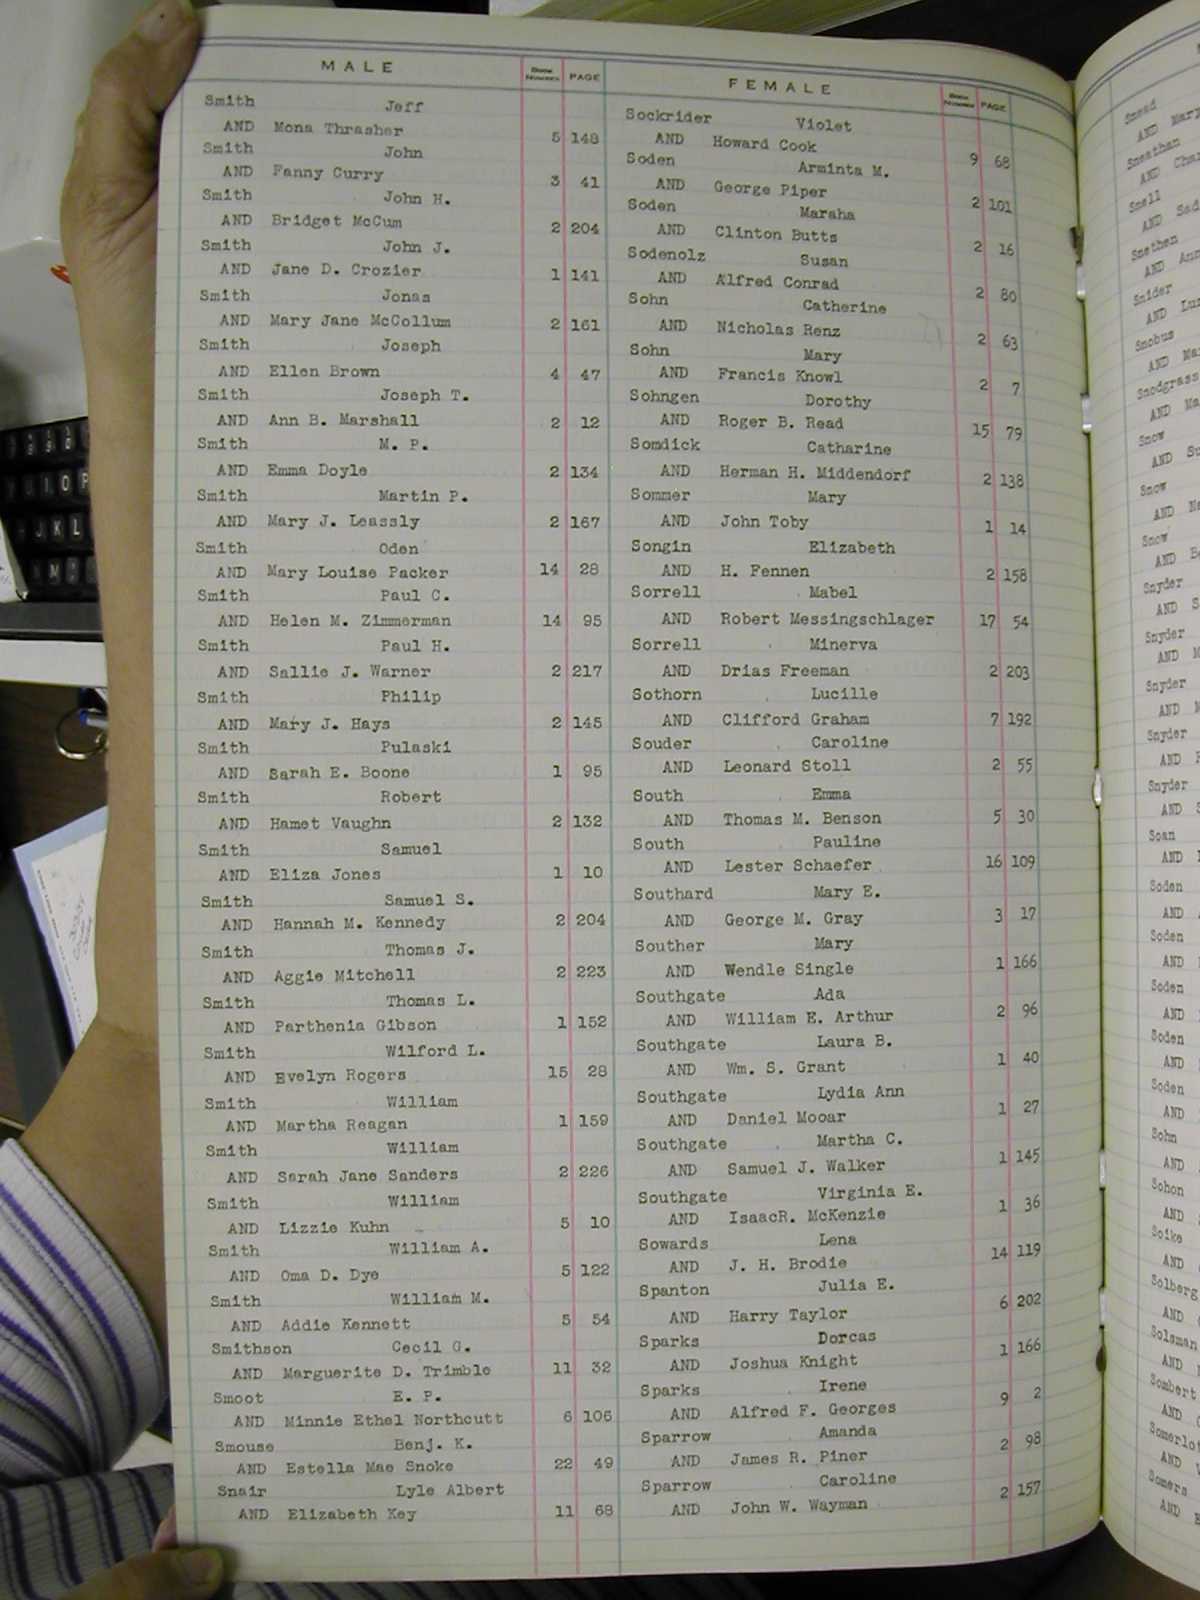 MALE BOOK NUMBER PAGE
Smith Jeff
AND Mona Thrasher 5 148
Smith John
AND Fanny Curry 3 41
Smith John H.
AND Bridget McCum 2 204
Smith John J.
AND Jane D. Crozier 1 141
Smith Jonas
AND Mary Jane McCollum 2 161
Smith Joseph
AND Ellen Brown 4 47
Smith Joseph T.
AND Ann B. Marshall 2 12
Smith M. P.
AND Emma Doyle 2 134
Smith Martin P.
AND Mary J. Leassly 2 167
Smith Oden
AND Mary Louise Packer 14 28
Smith Paul C.
AND Helen M. Zimmerman 14 95
Smith Paul H.
AND Sallie J. Warner 2 217
Smith Philip
AND Mary J. Hays 2 145
Smith Pulaski
AND Sarah E. Boone 1 95
Smith Robert
AND Hamet Vaughn 2 132
Smith Samuel
AND Eliza Jones 1 10
Smith Samuel S.
AND Hannah M. Kennedy 2 204
Smith Thomas J.
AND Aggie Mitchell 2 223
Smith Thomas L.
AND Parthenia Gibson 1 152
Smith Wilford L.
AND Evelyn Rogers 15 28
Smith William
AND Martha Reagan 1 159
Smith William
AND Sarah Jane Sanders 2 226
Smith William
AND Lizzie Kuhn 5 10
Smith William A.
AND Oma D. Dye 5 122
Smith William M.
AND Addie Kennett 5 54
Smithson Cecil G.
AND Marguerite D. Trimble 11 32
Smoot E. P.
AND Minnie Ethel Northcutt 6 106
Smouse Benj. K.
AND Estella Mae Snoke 22 49
Snair Lyle Albert
AND Elizabeth Key 11 68
FEMALE BOOK NUMBER PAGE
Sockrider Violet
AND Howard Cook 9 68
Soden Arminta M.
AND George Piper 2 101
Soden Maraha
AND Clinton Butts 2 16
Sodenolz Susan
AND Alfred Conrad 2 80
Sohn Catherine
AND Nicholas Renz 2 63
Sohn Mary
AND Francis Knowl 2 7
Sohngen Dorothy
AND Roger B. Read 15 79
Somdick Catharine
AND Herman H. Middendorf 2 138
Sommer Mary
AND John Toby 1 14
Songin Elizabeth
AND H. Fennen 2 158
Sorrell Mabel
AND Robert Messingschlager 17 54
Sorrell Minerva
AND Drias Freeman 2 203
Sothorn Lucille
AND Clifford Graham 7 192
Souder Caroline
AND Leonard Stoll 2 55
South Emma
AND Thomas M. Benson 5 30
South Pauline
AND Lester Schaefer 16 109
Southard Mary E.
AND George M. Gray 3 17
Souther Mary
AND Wendle Single 1 166
Southgate Ada
AND William E. Arthur 2 96
Southgate Laura B.
AND Wm. S. Grant 1 40
Southgate Lydia Ann
AND Daniel Mooar 1 27
Southgate Martha C.
AND Samuel J. Walker 1 145
Southgate Virginia E.
AND IsaacR. McKenzie 1 36
Sowards Lena
AND J. H. Brodie 14 119
Spanton Julia E.
AND Harry Taylor 6 202
Sparks Dorcas
AND Joshua Knight 1 166
Sparks Irene
AND Alfred F. Georges 9 2
Sparrow Amanda
AND James R. Piner 2 98
Sparrow Caroline
AND John W. Wayman 2 157
Smead
AND Mary
Sneathan
AND
Snell
AND
Snethen
AND
Snider
AND
Snobus
AND
Snodgrass
AND
Snow
AND
Snow
AND
Snow
AND
Snyder
AND
Snyder
AND
Snyder
AND
Snyder
AND
Snyder
AND
Soan
AND
Soden
AND
Soden
AND
Soden
AND
Soden
AND
Soden
AND
Sohn
AND
Sohon
AND
Soike
AND
Solberg
AND
Solsman
AND
Sombert
AND
AND
Somers
AND